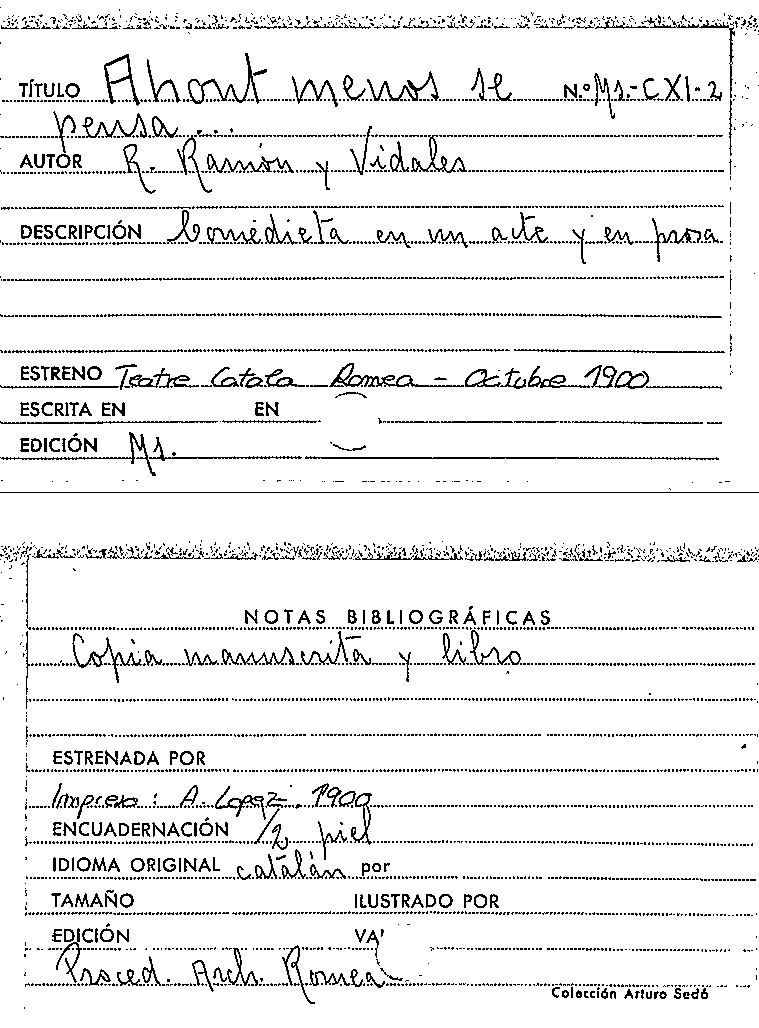 TÍTULO Ahont menos se N.º Ms.-CXI-2
pensa...
AUTOR R. Ramón y Vidales
DESCRIPCIÓN Comedieta en un acte y en prosa
ESTRENO Teatre Catala Romea - Octubre 1900
ESCRITA EN EN
EDICIÓN Ms.
NOTAS BIBLIOGRÁFICAS
Copia manuscrita y libro
ESTRENADA POR
Impreso: A. Lopez. 1900
ENCUADERNACIÓN 1/2 piel
IDIOMA ORIGINAL catalán por
TAMAÑO ILUSTRADO POR
EDICIÓN VA
Proced. Arch. Romea
Colección Arturo Sedó